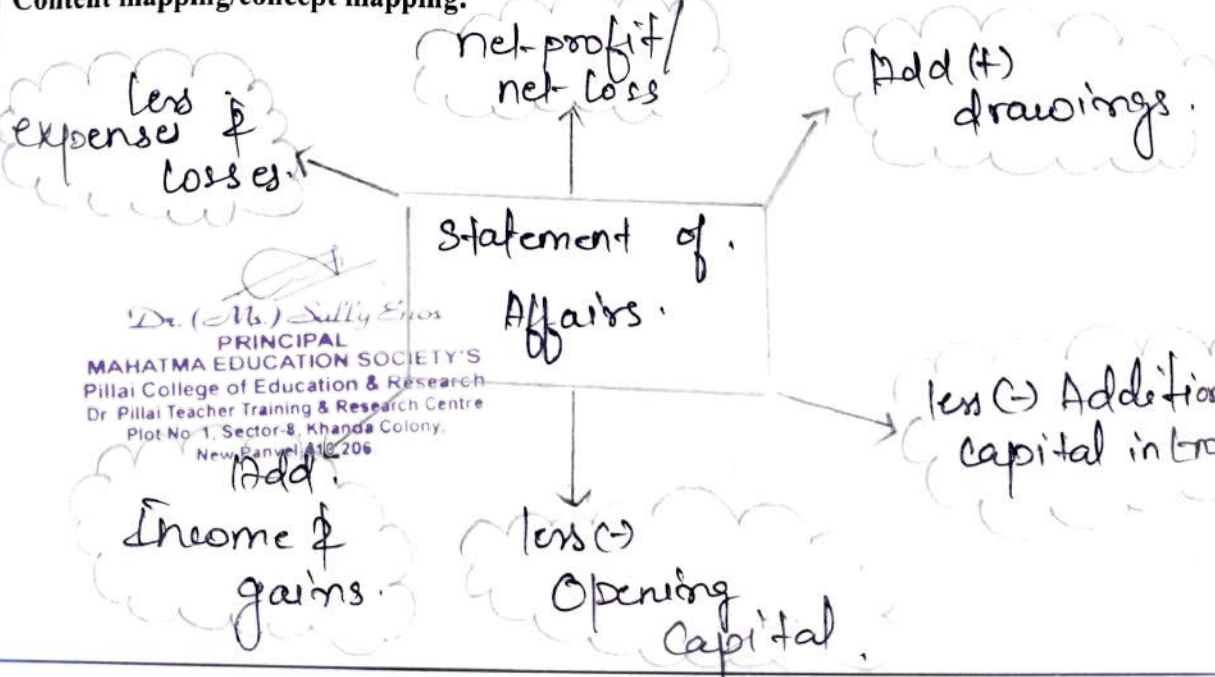 Content mapping/concept mapping:
net-profit/
net-loss
Add (+)
drawings.
less
expenses &
losses.
Statement of.
Affairs.
Dr. (Ms.) Sally Enos
PRINCIPAL
MAHATMA EDUCATION SOCIETY'S
Pillai College of Education & Research
Dr Pillai Teacher Training & Research Centre
Plot No 1, Sector-8, Khanda Colony,
New Panvel 410 206
less (-) Addition
capital intro
Add.
Income &
gains.
less (-)
Opening
Capital.